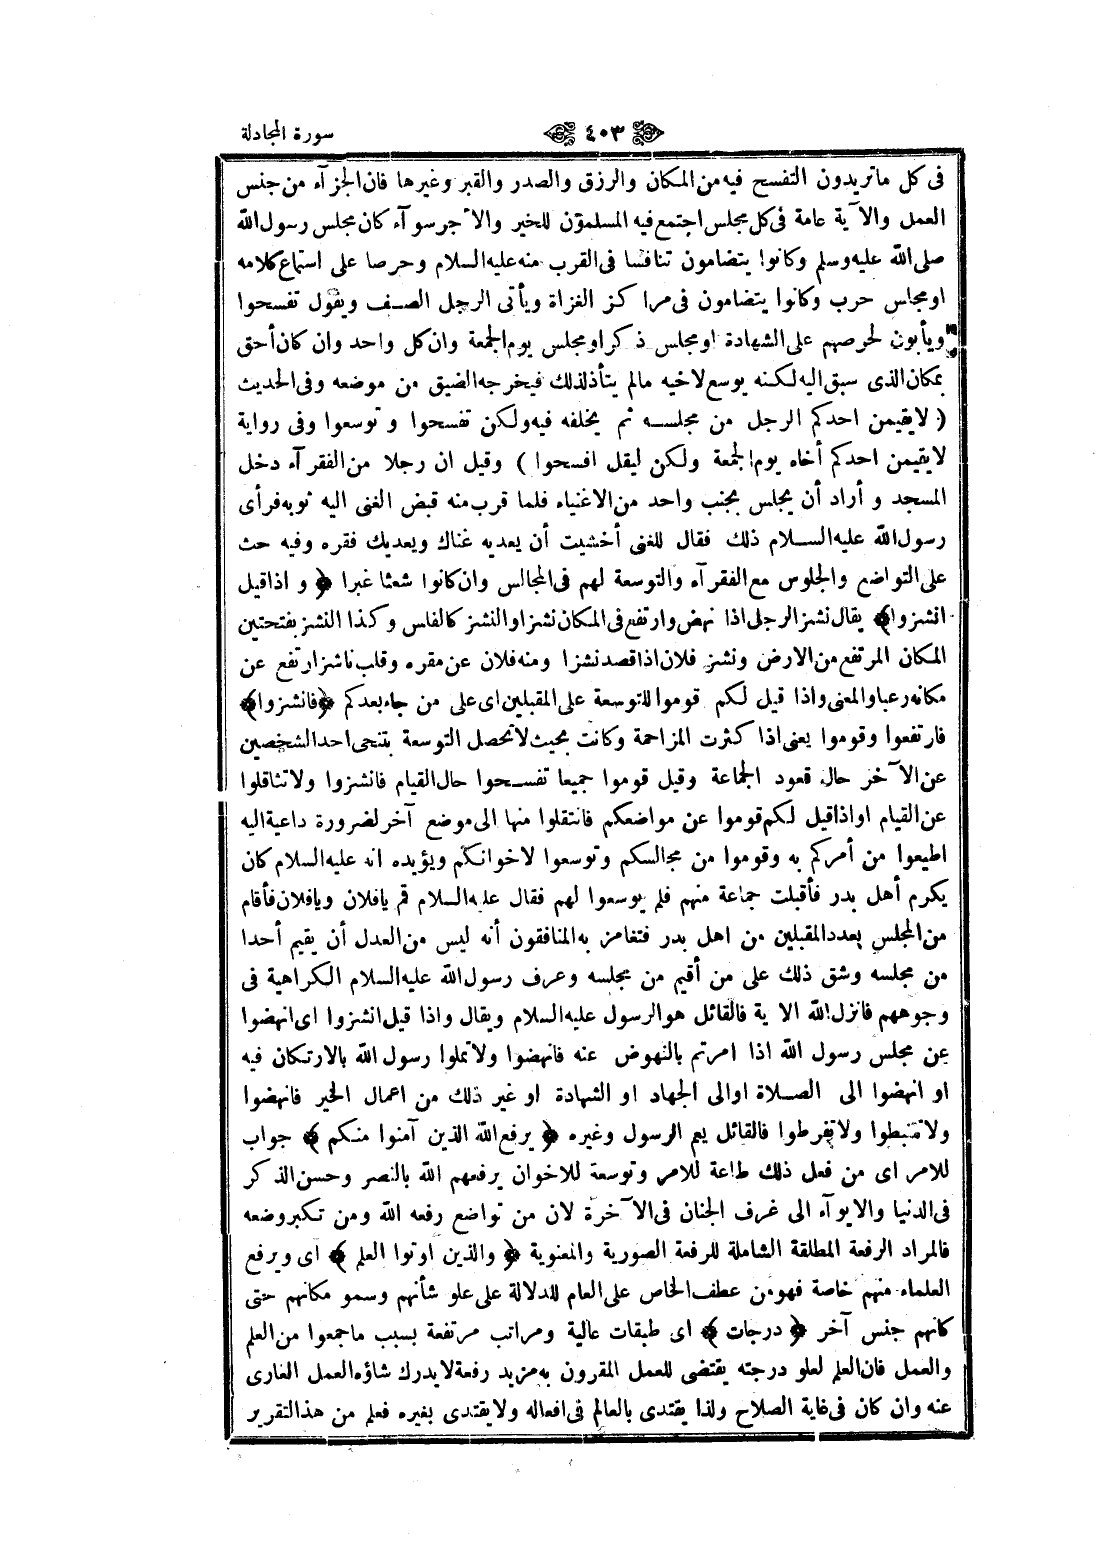 سورة المجادلة
٤٠٣
فى كل ماتريدون التفسح فيه من المكان والرزق والصدر والقبر وغيرها فان الجزآء من جنس
العمل والآية عامة فى كل مجلس اجتمع فيه المسلمون للخير والاجر سوآء كان مجلس رسول الله
صلى الله عليه وسلم وكانوا يتضامون تنافسا فى القرب منه عليه السلام وحرصا على استماع كلامه
او مجلس حرب وكانوا يتضامون فى مراكز الغزاة ويأتى الرجل الصف ويقول تفسحوا
ويأبون لحرصهم على الشهادة او مجلس ذكر او مجلس يوم الجمعة وان كل واحد وان كان أحق
بمكان الذى سبق اليه لكنه يوسع لاخيه مالم يتأذ لذلك فيخرجه الضيق من موضعه وفى الحديث
( لايقيمن احدكم الرجل من مجلسه ثم يخلفه فيه ولكن تفسحوا و توسعوا وفى رواية
لايقيمن احدكم أخاه يوم الجمعة ولكن ليقل افسحوا ) وقيل ان رجلا من الفقرآء دخل
المسجد و أراد أن يجلس بجنب واحد من الاغنياء فلما قرب منه قبض الغنى اليه ثوبه فرأى
رسول الله عليه السلام ذلك فقال للغنى أخشيت أن يعديه غناك ويعديك فقره وفيه حث
على التواضع والجلوس مع الفقرآء والتوسعة لهم فى المجالس وان كانوا شعثا غبرا ﴿ و اذا قيل
انشزوا﴾ يقال نشز الرجل اذا نهض وارتفع فى المكان نشزا والنشز كالفلس وكذا النشز بفتحتين
المكان المرتفع من الارض ونشز فلان اذا قصد نشزا ومنه فلان عن مقره وقلب ناشز ارتفع عن
مكانه رعبا والمعنى واذا قيل لكم قوموا للتوسعة على المقبلين اى على من جاء بعدكم ﴿فانشزوا﴾
فارتفعوا وقوموا يعنى اذا كثرت المزاحمة وكانت بحيث لاتحصل التوسعة بتنحى احد الشخصين
عن الآخر حال قعود الجماعة وقيل قوموا جميعا تفسحوا حال القيام فانشزوا ولاتثاقلوا
عن القيام او اذا قيل لكم قوموا عن مواضعكم فانتقلوا منها الى موضع آخر لضرورة داعية اليه
اطيعوا من أمركم به وقوموا من مجالسكم وتوسعوا لاخوانكم ويؤيده انه عليه السلام كان
يكرم أهل بدر فأقبلت جماعة منهم فلم يوسعوا لهم فقال عليه السلام قم يافلان ويافلان فأقام
من المجلس بعدد المقبلين من اهل بدر فتغامز به المنافقون أنه ليس من العدل أن يقيم أحدا
من مجلسه وشق ذلك على من أقيم من مجلسه وعرف رسول الله عليه السلام الكراهية فى
وجوههم فانزل الله الاية فالقائل هو الرسول عليه السلام ويقال واذا قيل انشزوا اى انهضوا
عن مجلس رسول الله اذا امرتم بالنهوض عنه فانهضوا ولاتملوا رسول الله بالارتكان فيه
او انهضوا الى الصلاة او الى الجهاد او الشهادة او غير ذلك من اعمال الخير فانهضوا
ولاتثبطوا ولاتفرطوا فالقائل يعم الرسول وغيره ﴿ يرفع الله الذين آمنوا منكم ﴾ جواب
للامر اى من فعل ذلك طاعة للامر وتوسعة للاخوان يرفعهم الله بالنصر وحسن الذكر
فى الدنيا والايوآء الى غرف الجنان فى الآخرة لان من تواضع رفعه الله ومن تكبر وضعه
فالمراد الرفعة المطلقة الشاملة للرفعة الصورية والمعنوية ﴿ والذين اوتوا العلم ﴾ اى ويرفع
العلماء منهم خاصة فهو من عطف الخاص على العام للدلالة على علو شأنهم وسمو مكانهم حتى
كانهم جنس آخر ﴿ درجات ﴾ اى طبقات عالية ومراتب مرتفعة بسبب ماجمعوا من العلم
والعمل فان العلم لعلو درجته يقتضى للعمل المقرون به مزيد رفعة لايدرك شاؤه العمل العارى
عنه وان كان فى غاية الصلاح ولذا يقتدى بالعالم فى افعاله ولايقتدى بغيره فعلم من هذا التقرير